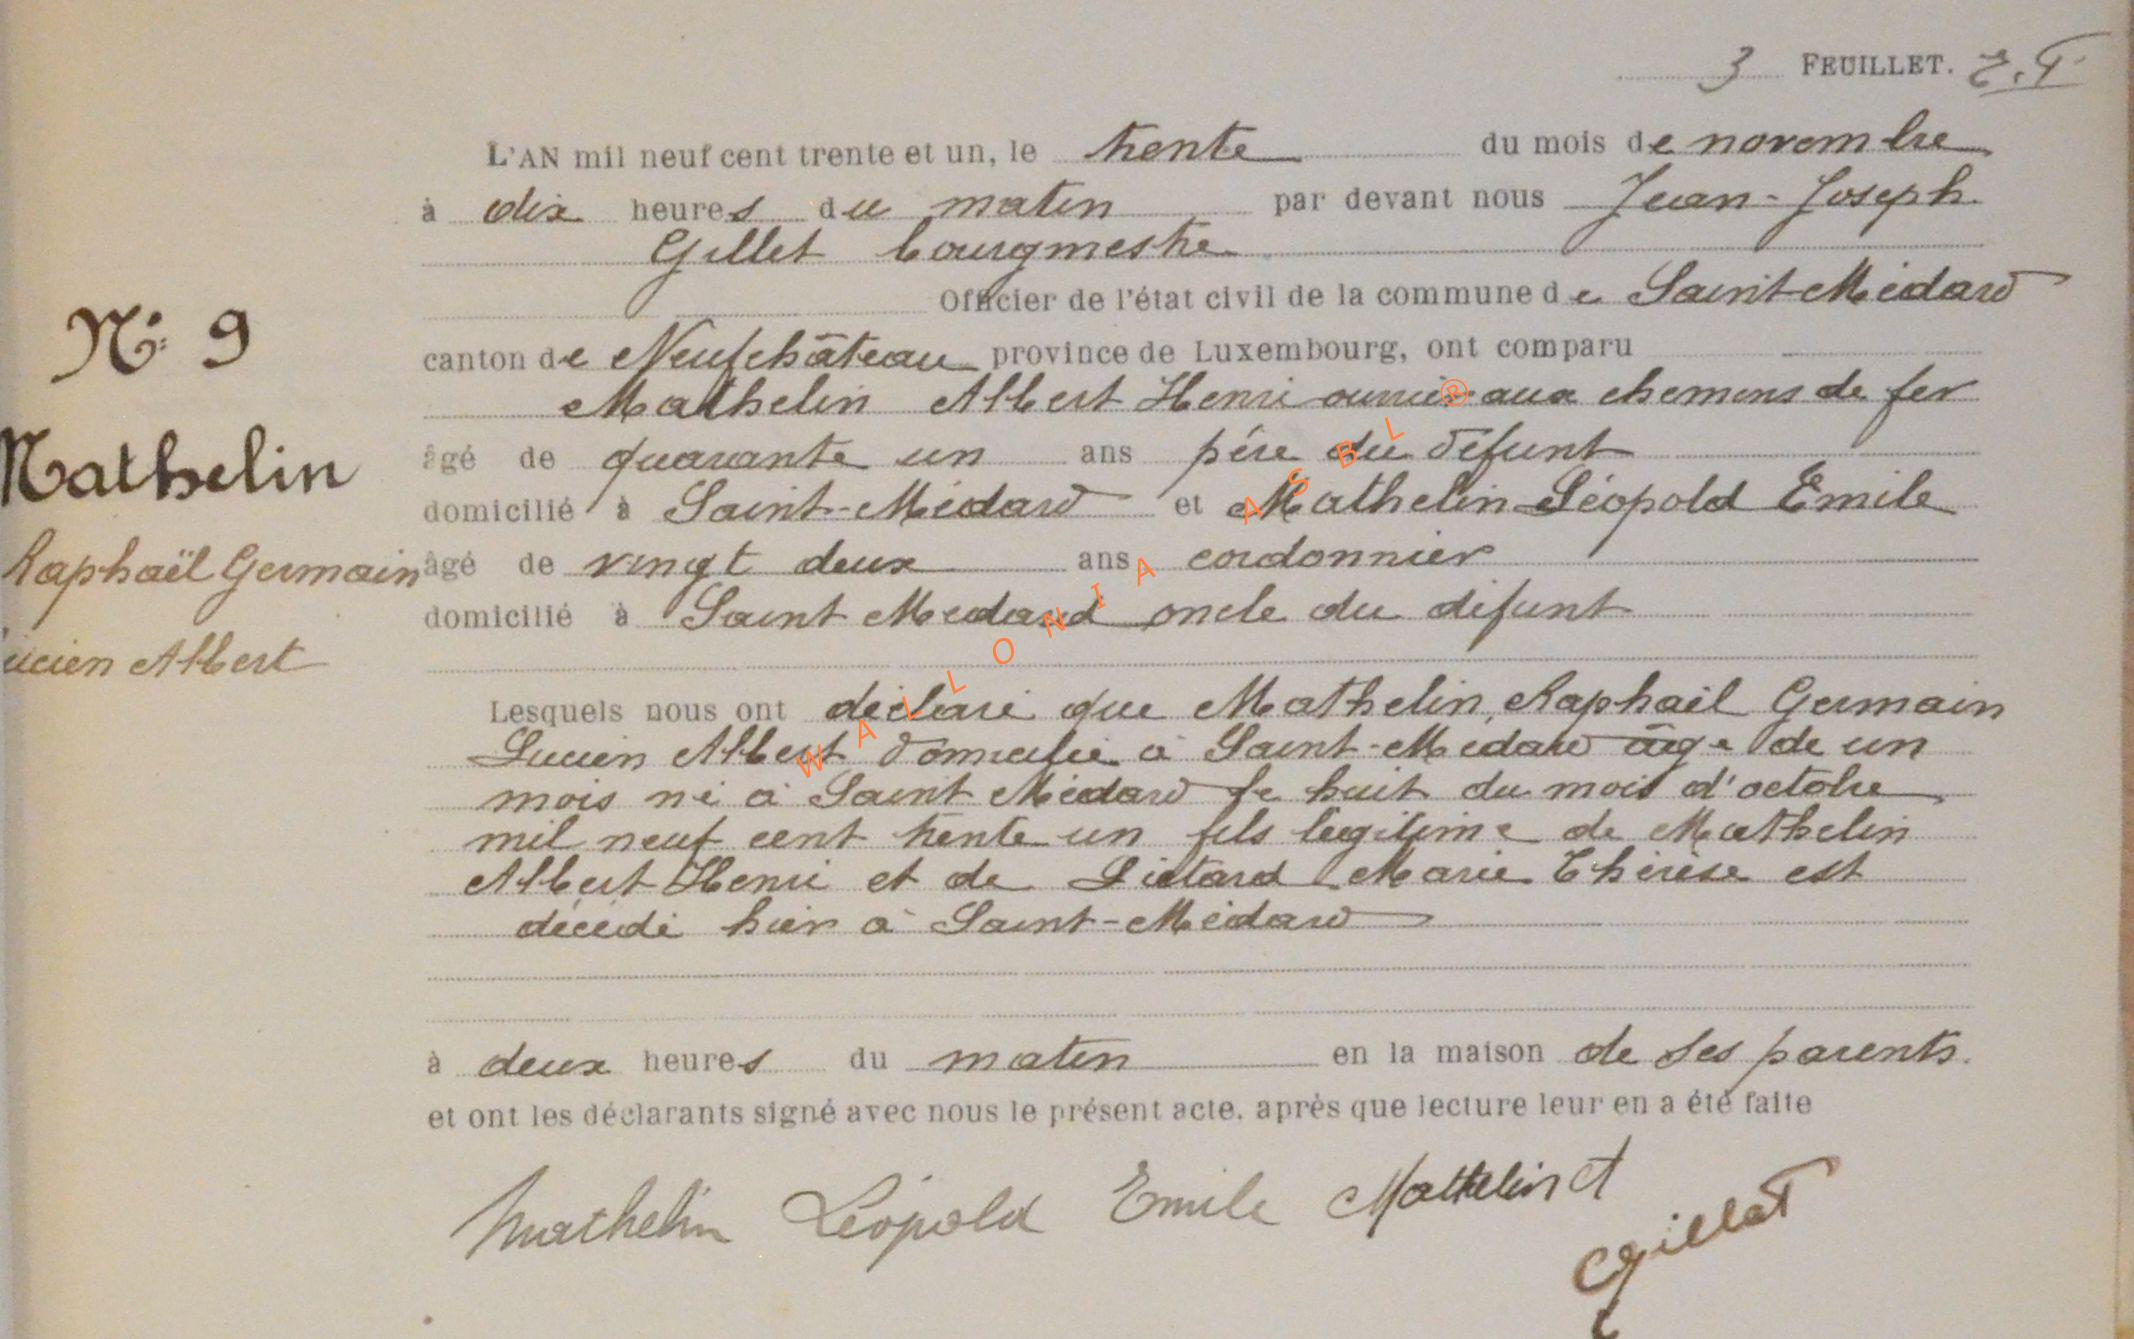 3 FEUILLET.
L'AN mil neuf cent trente et un, le trente du mois de novembre
à dix heures du matin par devant nous Jean-Joseph
Gillet bourgmestre
Officier de l'état civil de la commune de Saint-Médard
canton de Neufchâteau province de Luxembourg, ont comparu
Mathelin Albert Henri ouvrier aux chemins de fer
âgé de quarante un ans père du défunt
domicilié à Saint-Médard et Mathelin Léopold Emile
âgé de vingt deux ans cordonnier
domicilié à Saint Médard oncle du défunt
Lesquels nous ont déclaré que Mathelin, Raphaël Germain
Lucien Albert domicilié à Saint-Médard âgé de un
mois né à Saint Médard le huit du mois d'octobre
mil neuf cent trente un fils légitime de Mathelin
Albert Henri et de Liétard Marie Thérèse est
décédé hier à Saint-Médard
à deux heures du matin en la maison de ses parents.
et ont les déclarants signé avec nous le présent acte, après que lecture leur en a été faite
Mathelin Léopold Emile Mathelin A
Gillet
N° 9
Mathelin
Raphaël Germain
Lucien Albert
WALLONIA ASBL ®